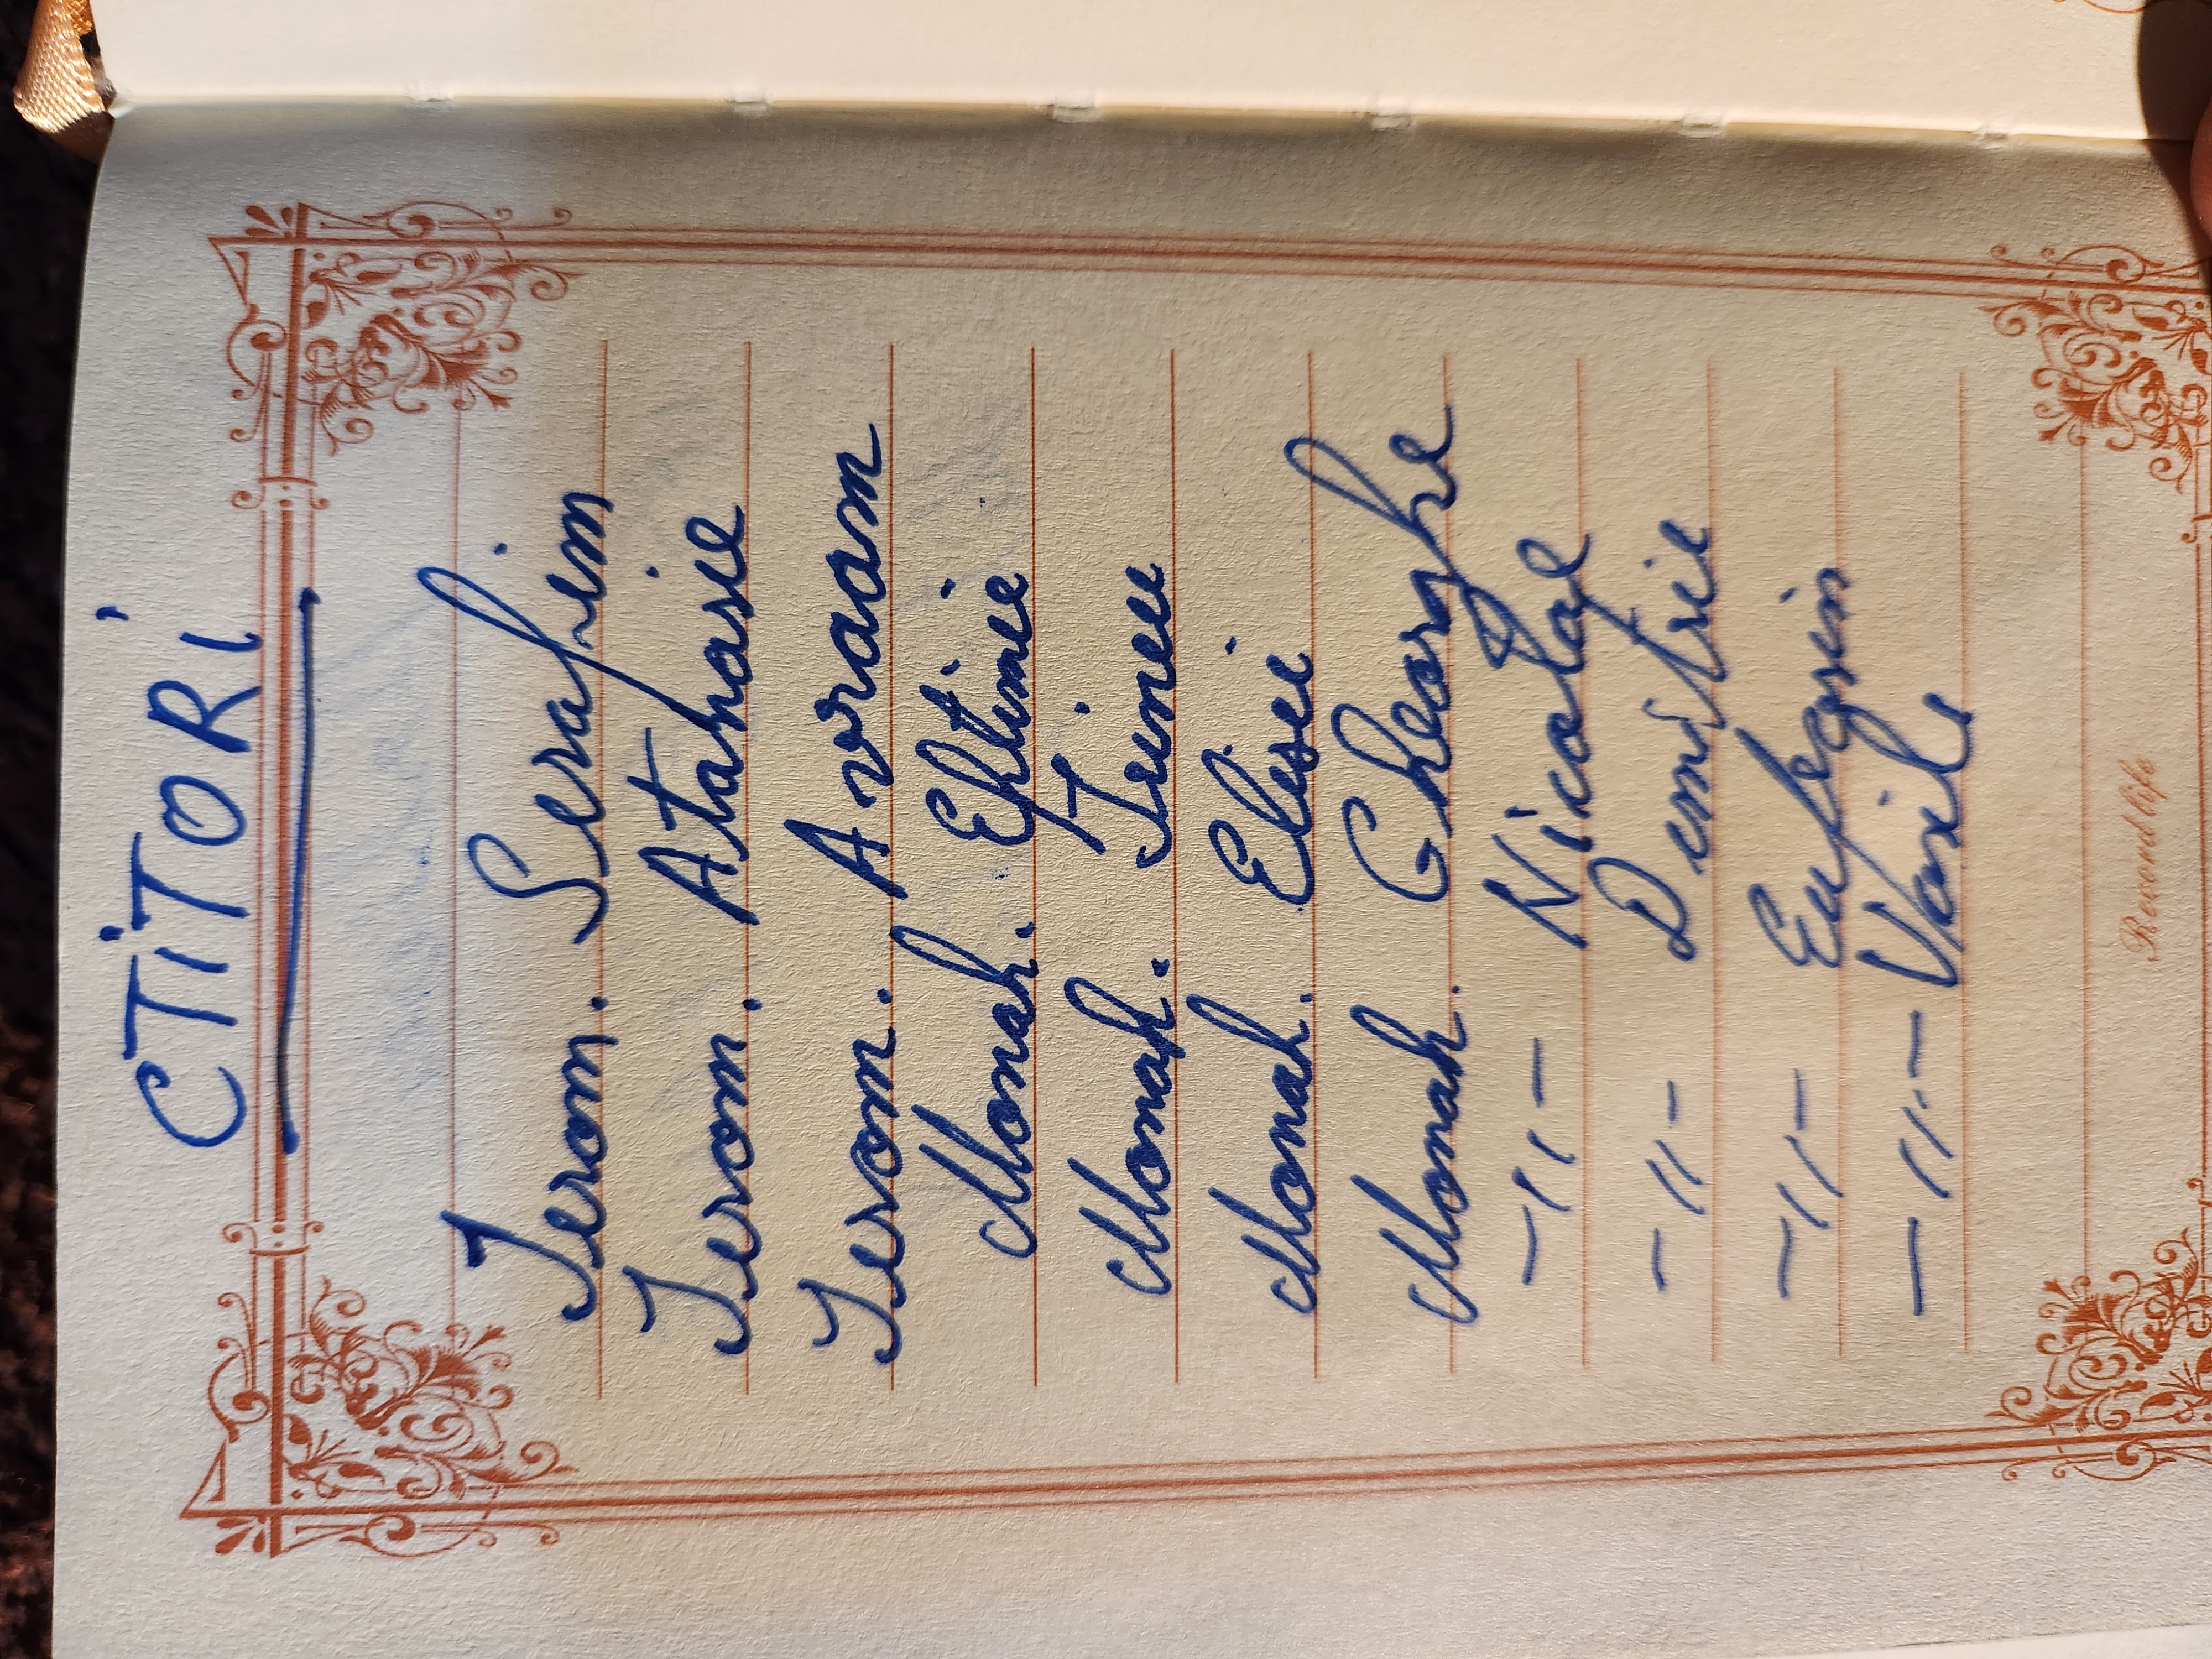 CTiTORi
Ierom. Serafim
Ierom. Atanasie
Ierom. Avraam
Monah. Eftimie
Monah. Irineu
Monah. Elisei
Monah. Gheorghe
-11- Nicolae
-11- Dimitrie
-11- Eufegnin
-11- Vasile
Record life